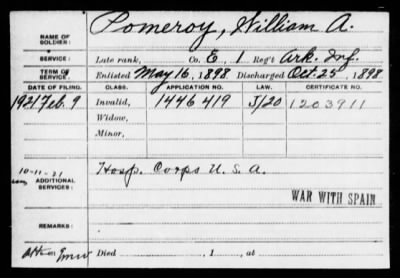 Pomeroy, William A.
NAME OF SOLDIER:
SERVICE: Late rank, Co. E, 1 Reg't Ark. Inf.
TERM OF SERVICE: Enlisted May 16, 1898 Discharged Oct. 25, 1898
DATE OF FILING. CLASS. APPLICATION NO. LAW. CERTIFICATE NO.
1921 Feb. 9 Invalid, 1446419 J/20 1203911
Widow,
Minor,
10-11-21 Hosp. Corps U. S. A.
ADDITIONAL SERVICES:
WAR WITH SPAIN
REMARKS:
Died , 1 , at